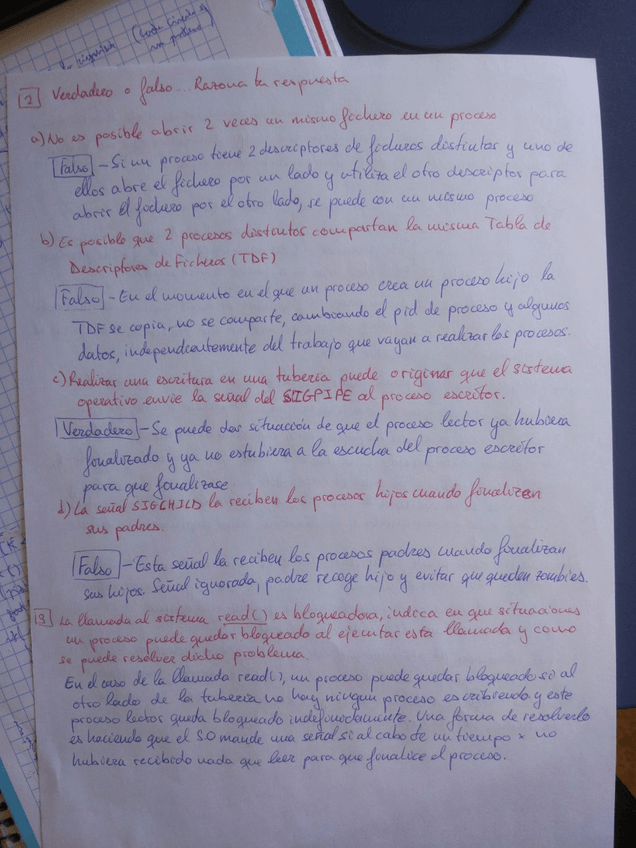 (cada línea es
un problema)
2 Verdadero o falso... Razona tu respuesta
a) No es posible abrir 2 veces un mismo fichero en un proceso
Falso - Si un proceso tiene 2 descriptores de ficheros distintos y uno de
ellos abre el fichero por un lado y utiliza el otro descriptor para
abrir el fichero por el otro lado, se puede con un mismo proceso
b) Es posible que 2 procesos distintos compartan la misma Tabla de
Descriptores de Ficheros (TDF)
Falso - En el momento en el que un proceso crea un proceso hijo la
TDF se copia, no se comparte, cambiando el pid de proceso y algunos
datos, independientemente del trabajo que vayan a realizar los procesos.
c) Realizar una escritura en una tubería puede originar que el sistema
operativo envíe la señal del SIGPIPE al proceso escritor.
Verdadero - Se puede dar situación de que el proceso lector ya hubiera
finalizado y ya no estubiera a la escucha del proceso escritor
para que finalizase.
d) La señal SIGCHILD la reciben los procesos hijos cuando finalizan
sus padres.
Falso - Esta señal la reciben los procesos padres cuando finalizan
sus hijos. Señal ignorada, padre recoge hijo y evitar que queden zombies.
3 La llamada al sistema read() es bloqueadora, indica en que situaciones
un proceso puede quedar bloqueado al ejecutar esta llamada y como
se puede resolver dicho problema.
En el caso de la llamada read(), un proceso puede quedar bloqueado si al
otro lado de la tubería no hay ningún proceso escribiendo y este
proceso lector queda bloqueado indefinidamente. Una forma de resolverlo
es haciendo que el S.O mande una señal si al cabo de un tiempo x no
hubiera recibido nada que leer para que finalice el proceso.